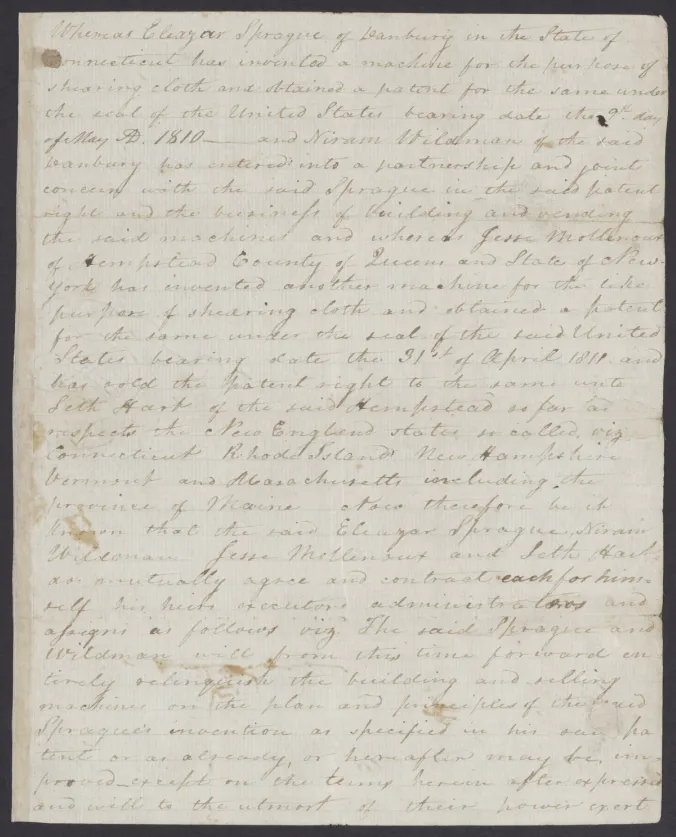 Whereas Eleazar Sprague of Danbury in the State of
Connecticut has invented a machine for the purpose of
shearing cloth and obtained a patent for the same under
the seal of the United States bearing date the 9th day
of May AD. 1810 — and Niram Wildman of the said
Danbury has entered into a partnership and joint
concern with the said Sprague in the said patent
right and the business of building and vending
the said machines and whereas Jesse Molleneux
of Hempstead County of Queens and State of New-
york has invented another machine for the like
purpose of shearing cloth and obtained a patent
for the same under the seal of the said United
States bearing date the 31st of April 1811 and
has sold the patent right to the same unto
Seth Hart of the said Hempstead so far as
respects the New England states so called, viz
Connecticut Rhode Island New Hampshire
Vermont and Massachusetts including the
province of Maine Now therefore be it
known that the said Eleazar Sprague, Niram
Wildman Jesse Molleneux and Seth Hart
do mutually agree and contract each for him-
self his heirs executors administrators and
assigns as follows viz The said Sprague and
Wildman will from this time forward en-
tirely relinquish the building and selling
machines on the plan and principles of the said
Sprague's invention as specified in his said pa
tent or as already, or hereafter may be, im-
proved—except on the terms herein after expressed
and will to the utmost of their power exert